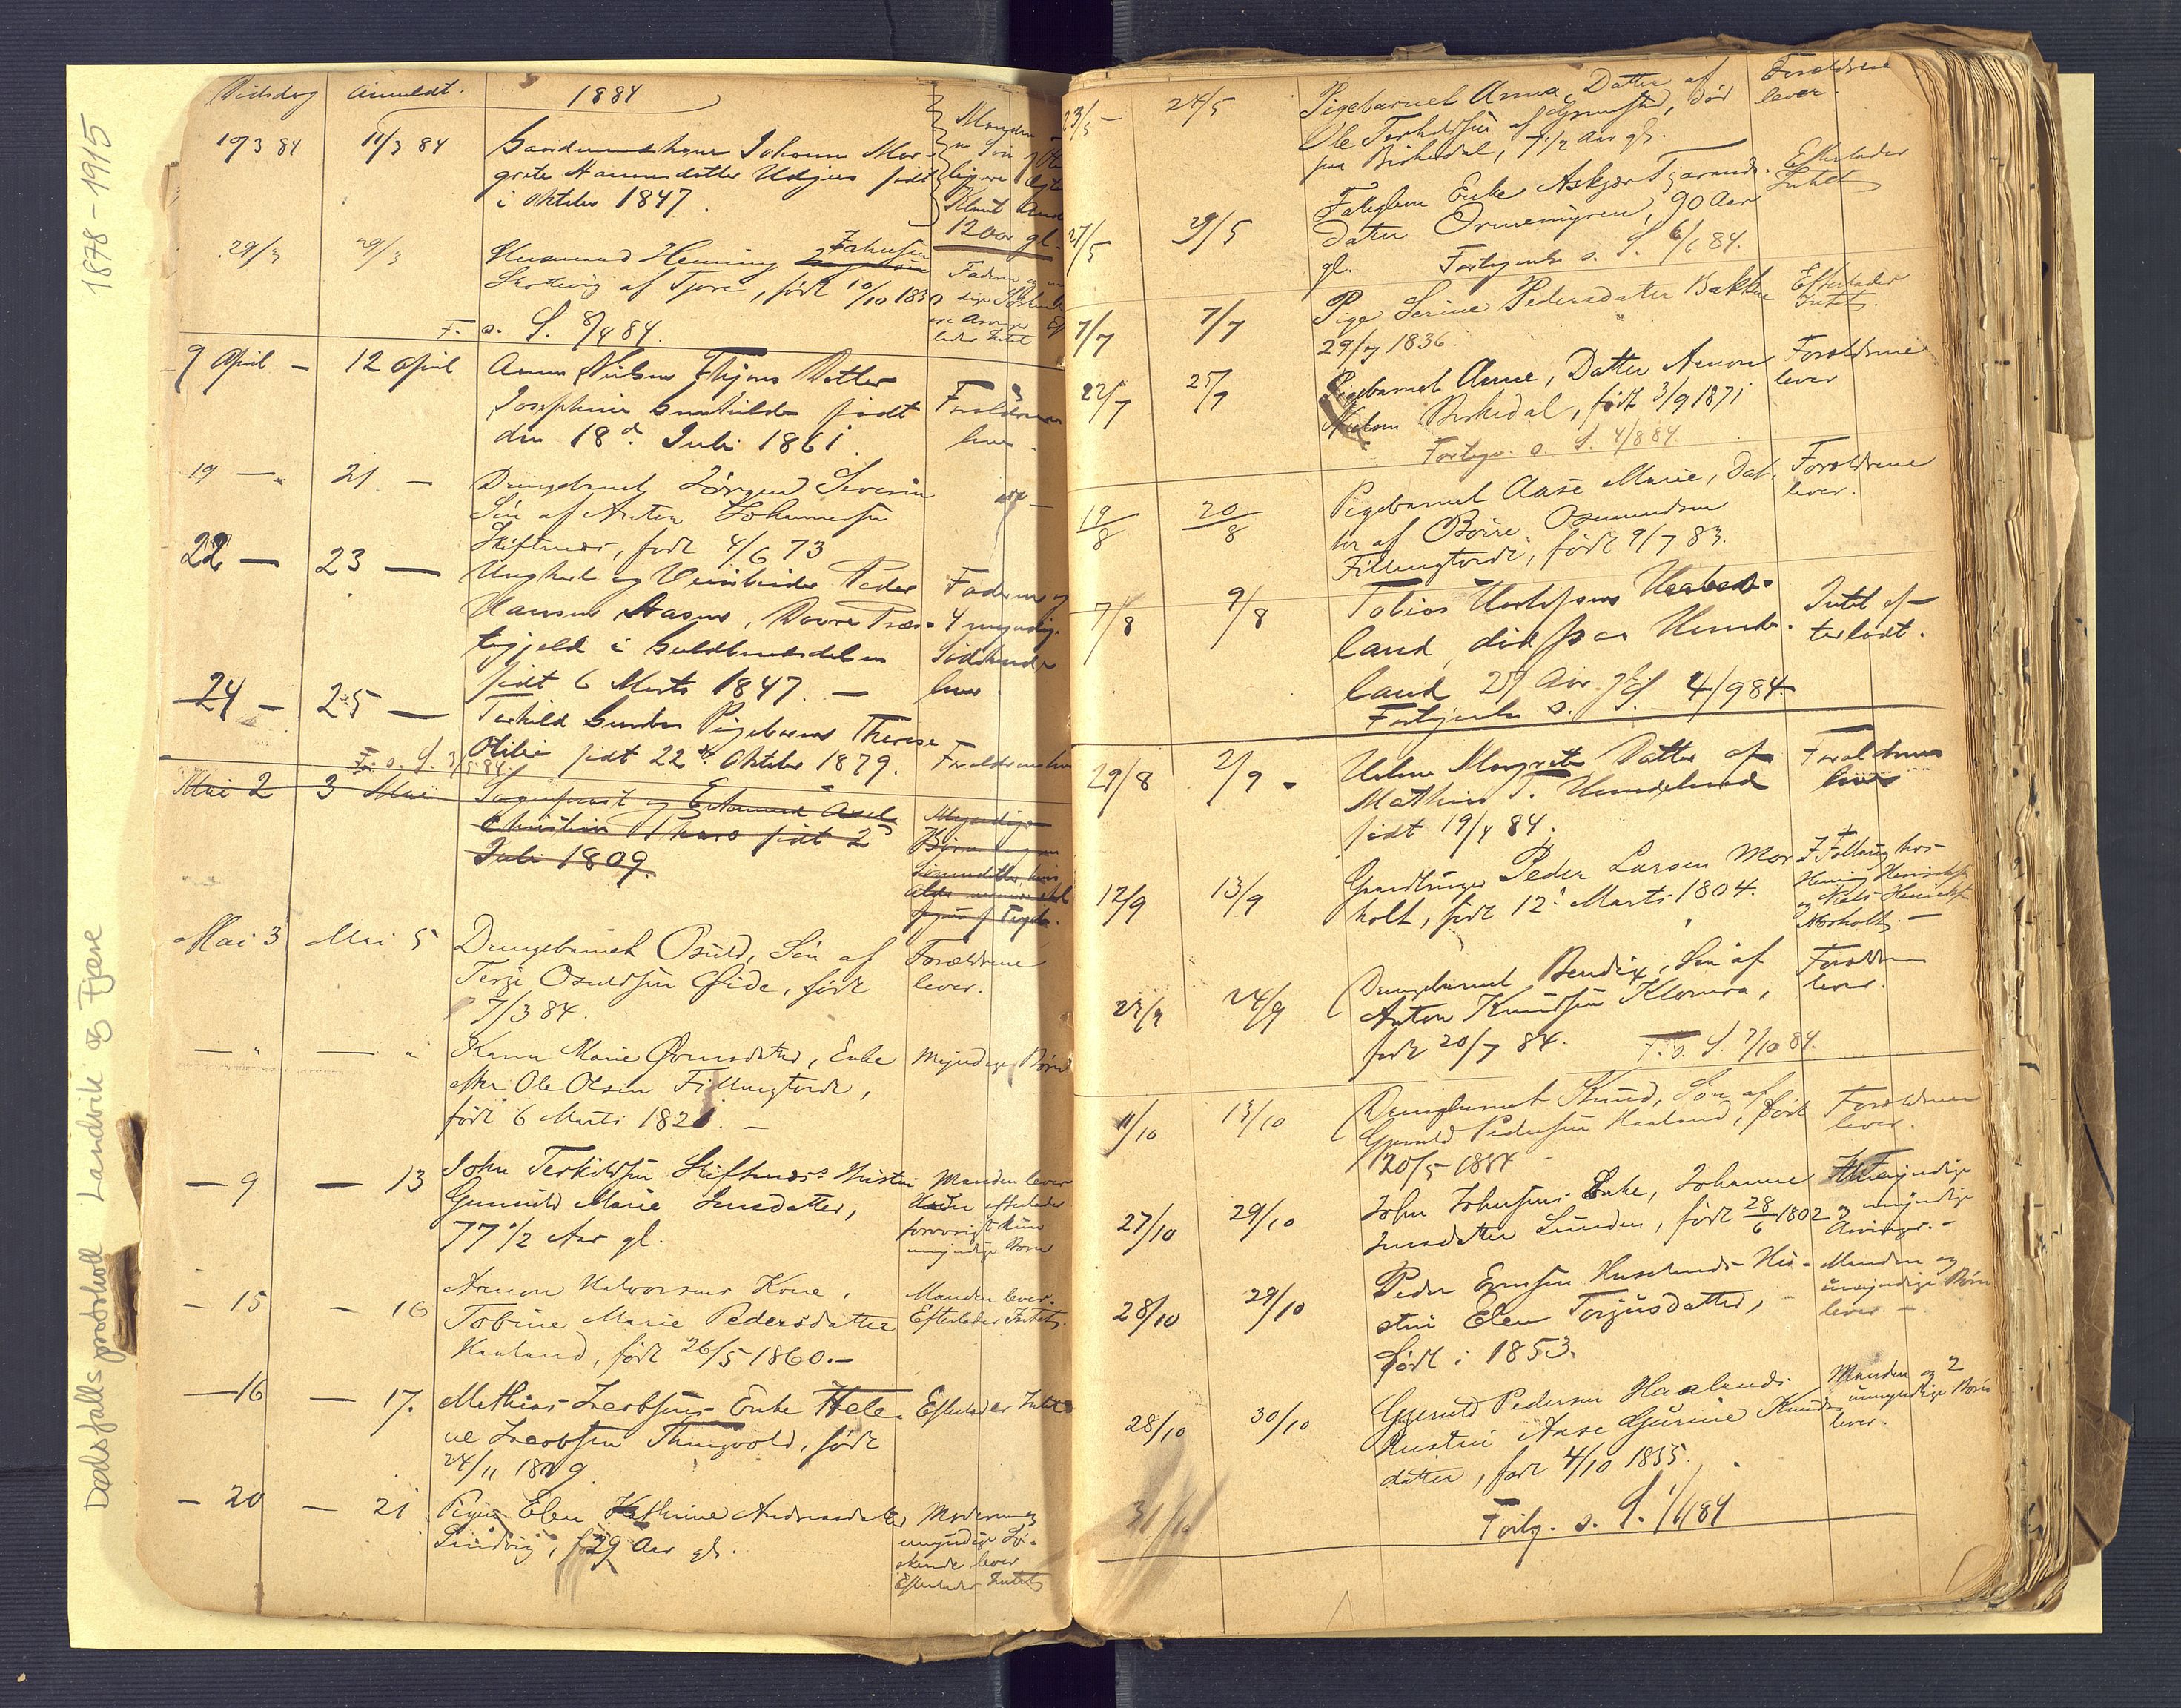 1878-1915
Dødsfallsprotokoll Landvik og Fjære
Dødsdag Anmeldt. 1884
10/3 84 11/3 84 Gaardmandskone Johanne Mar-
grete Hansdatter født
i Oktober 1847.
Manden
Knut
1200 gl.
29/3 29/3 Husmand Henning Johnsen
af Fjære, født 10/10 1830
F. s. S. 8/4 84.
Intet
9 April - 12 April Anna Nielsens Datter
Josephine Gunhilde født
den 18d Juli 1861.
Forældrene
lever
19 - 21 - Drengebarnet Jørgen Severin
Søn af Anton Johannesen
Skiftenes, født 4/6 73
22 - 23 - Ungkarl og Peder
Hansen Aasen, Dovre Præs-
tegjeld i Guldbrandsdalen
født 6 Marts 1847. -
Faderen og
4 myndige
Sødskende
lever.
24 - 25 - Terkild Pigebarn Therese
Otilie født 22de Oktober 1879.
F. s. S.
Forældrene
Mai 2 3 Mai og Enkemand Axel
Christian født 2
Juli 1809.
Myndige
Børn
Mai 3 Mai 5 Drengebarnet Osuld, Søn af
Terje Osuldsen Eide, født
7/3 84.
Forældrene
lever.
- " - " Karen Marie Gunsdatter, Enke
efter Ole Olsen Fillingtveit,
født 6 Marts 1821. -
Myndige Børn
- 9 - 13 John Terkildsen Skiftenes's Hustru
Gunnild Marie Jensdatter,
77 1/2 Aar gl.
Manden lever
efterlader
forøvrigt kun
umyndige Børn
- 15 - 16 Aanon Halvorsens Kone,
Tobine Marie Pedersdatter
Haaland, født 26/5 1860. -
Manden lever.
Efterlader Intet.
- 16 - 17. Mathias Jacobsens Enke Hele-
ne Jacobsen Tingvold, født
24/11 1809.
Efterlader Intet
- 20 - 21 Pige Elen Kathrine Andreasdatter
Lindvig, 29 Aar gl.
Moderen og
umyndige Sø-
skende lever
Efterlader Intet
23/5 - 24/5 Pigebarnet Anna, Datter af
Ole Terkildsen af Grimstad, død
paa Birkedal, 7 1/2 Aar gl.
Forældrene
lever.
27/5 29/5 Fattiglem Enke Askjær Tjærands-
datter Ormemyren, 90 Aar
gl. Fortegnelse s. S. 6/6 84.
Efterlader
Intet
7/7 7/7 Pige Serine Pedersdatter Bakken
29/7 1836.
Efterlader
Intet.
22/7 25/7 Pigebarnet Anne, Datter Aanon
Nielsen Birkedal, født 3/9 1871
Fortegn. s. S. 4/8 84.
Forældrene
lever
19/8 20/8 Pigebarnet Aase Marie, Dat-
ter af Børre Osmundsen
Fillingtveit, født 9/7 83.
Forældrene
lever.
7/8 9/8 Tobias
land, død paa Hunde-
land 25 Aar gl.
Fortegnelse s. S. 4/9 84
Intet ef-
terladt.
29/8 2/9 - Helene Margrete Datter af
Mathias T. Hundeland
født 19/4 84.
Forældrene
lever
12/9 13/9 Gaardbruger Peder Larsen Mor-
holt, født 12te Marts 1804.
I Fattig hos
Henning Henriksen
og Niels Henriksen
Morholt. -
24/9 Drengebarnet Bendix, Søn af
Anton Knudsen Klomra,
født 20/7 84. F. s. S. 7/10 84.
Forældrene
lever.
11/10 13/10 Drengebarnet Knud, Søn af
Gjeruld Pedersen Haaland, født
20/5 1884
Forældrene
lever.
27/10 29/10 John Johnsens Enke, Johanne
Jensdatter Lunden, født 28/6 1802
myndige
og umyndige
Arvinger. -
28/10 29/10 Peder Evensen Huslands Hu-
stru Elen Torjusdatter,
født i 1853.
Manden og
umyndige Børn
lever. -
28/10 30/10 Gjeruld Pedersen Haalands
Hustru Aase Gurine Knuds-
datter, født 4/10 1855.
Manden og 2
umyndige Børn
lever.
31/10 Fortg. s. S. 1/11 84